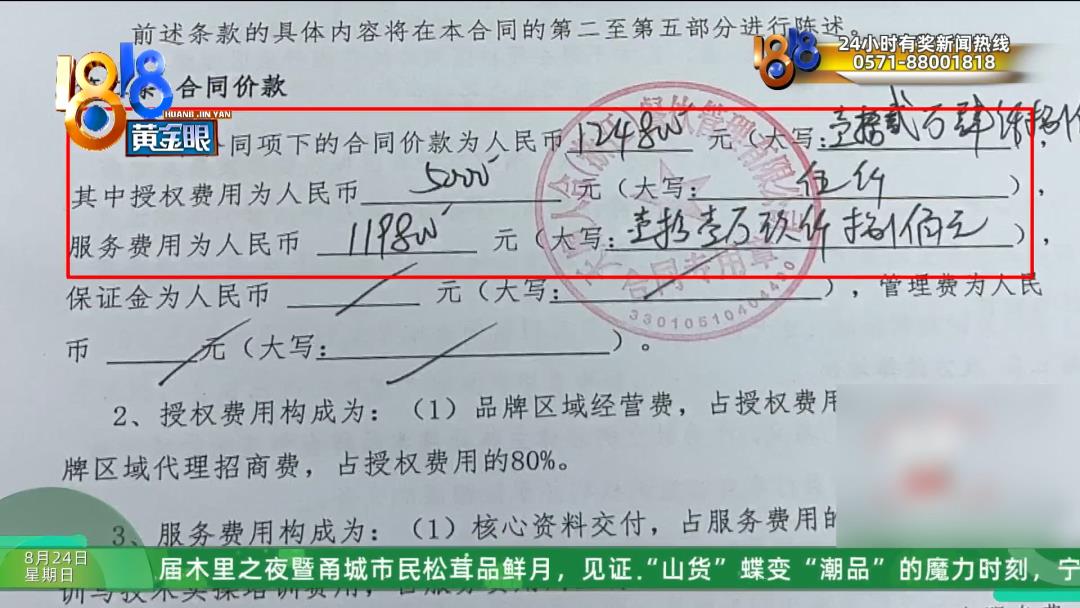 前述条款的具体内容将在本合同的第二至第五部分进行陈述。
24小时有奖新闻热线
0571-88001818
1818
1818
HUANG JIN YAN
黄金眼
条 合同价款
同项下的合同价款为人民币 124800 元（大写：壹拾贰万肆仟捌佰
其中授权费用为人民币 5000 元（大写：伍仟），
服务费用为人民币 119800 元（大写：壹拾壹万玖仟捌佰元），
保证金为人民币 元（大写： ），管理费为人民
币 元（大写： ）。
合同专用章
33010510404430
2、授权费用构成为：（1）品牌区域经营费，占授权费用
牌区域代理招商费，占授权费用的80%。
3、服务费用构成为：（1）核心资料交付，占服务费用的
8月24日
星期日
届木里之夜暨甬城市民松茸品鲜月，见证.“山货”蝶变“潮品”的魔力时刻，宁